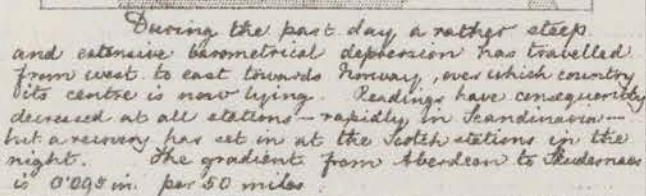 During the past day a rather steep
and extensive barometrical depression has travelled
from west to east towards Norway, over which country
its centre is now lying. Readings have consequently
decreased at all stations — rapidly in Scandinavia —
but a recovery has set in at the Scotch stations in the
night. The gradient from Aberdeen to Skudesnaes
is 0.095 in. per 50 miles.